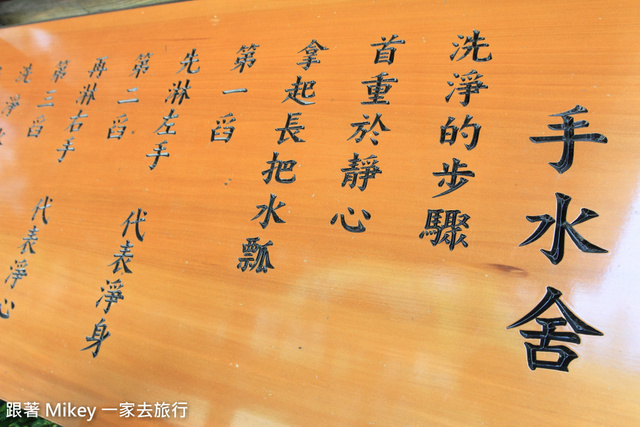 手水舍
洗淨的步驟
首重於靜心
拿起長把水瓢
第一舀
先淋左手 代表淨身
第二舀
再淋右手 代表淨心
第三舀
洗淨
跟著 Mikey 一家去旅行